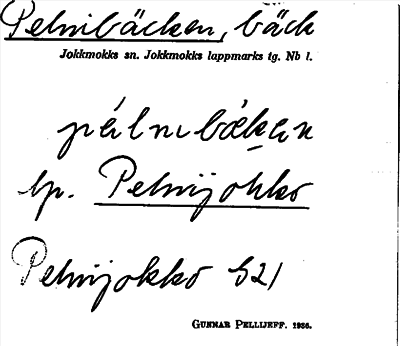 Pelnibäcken, bäck
Jokkmokks sn. Jokkmokks lappmarks tg. Nb l.
pélnibäkən
lp. Pelnijokko
Pelnijokko S21
GUNNAR PELLIJEFF. 1936.